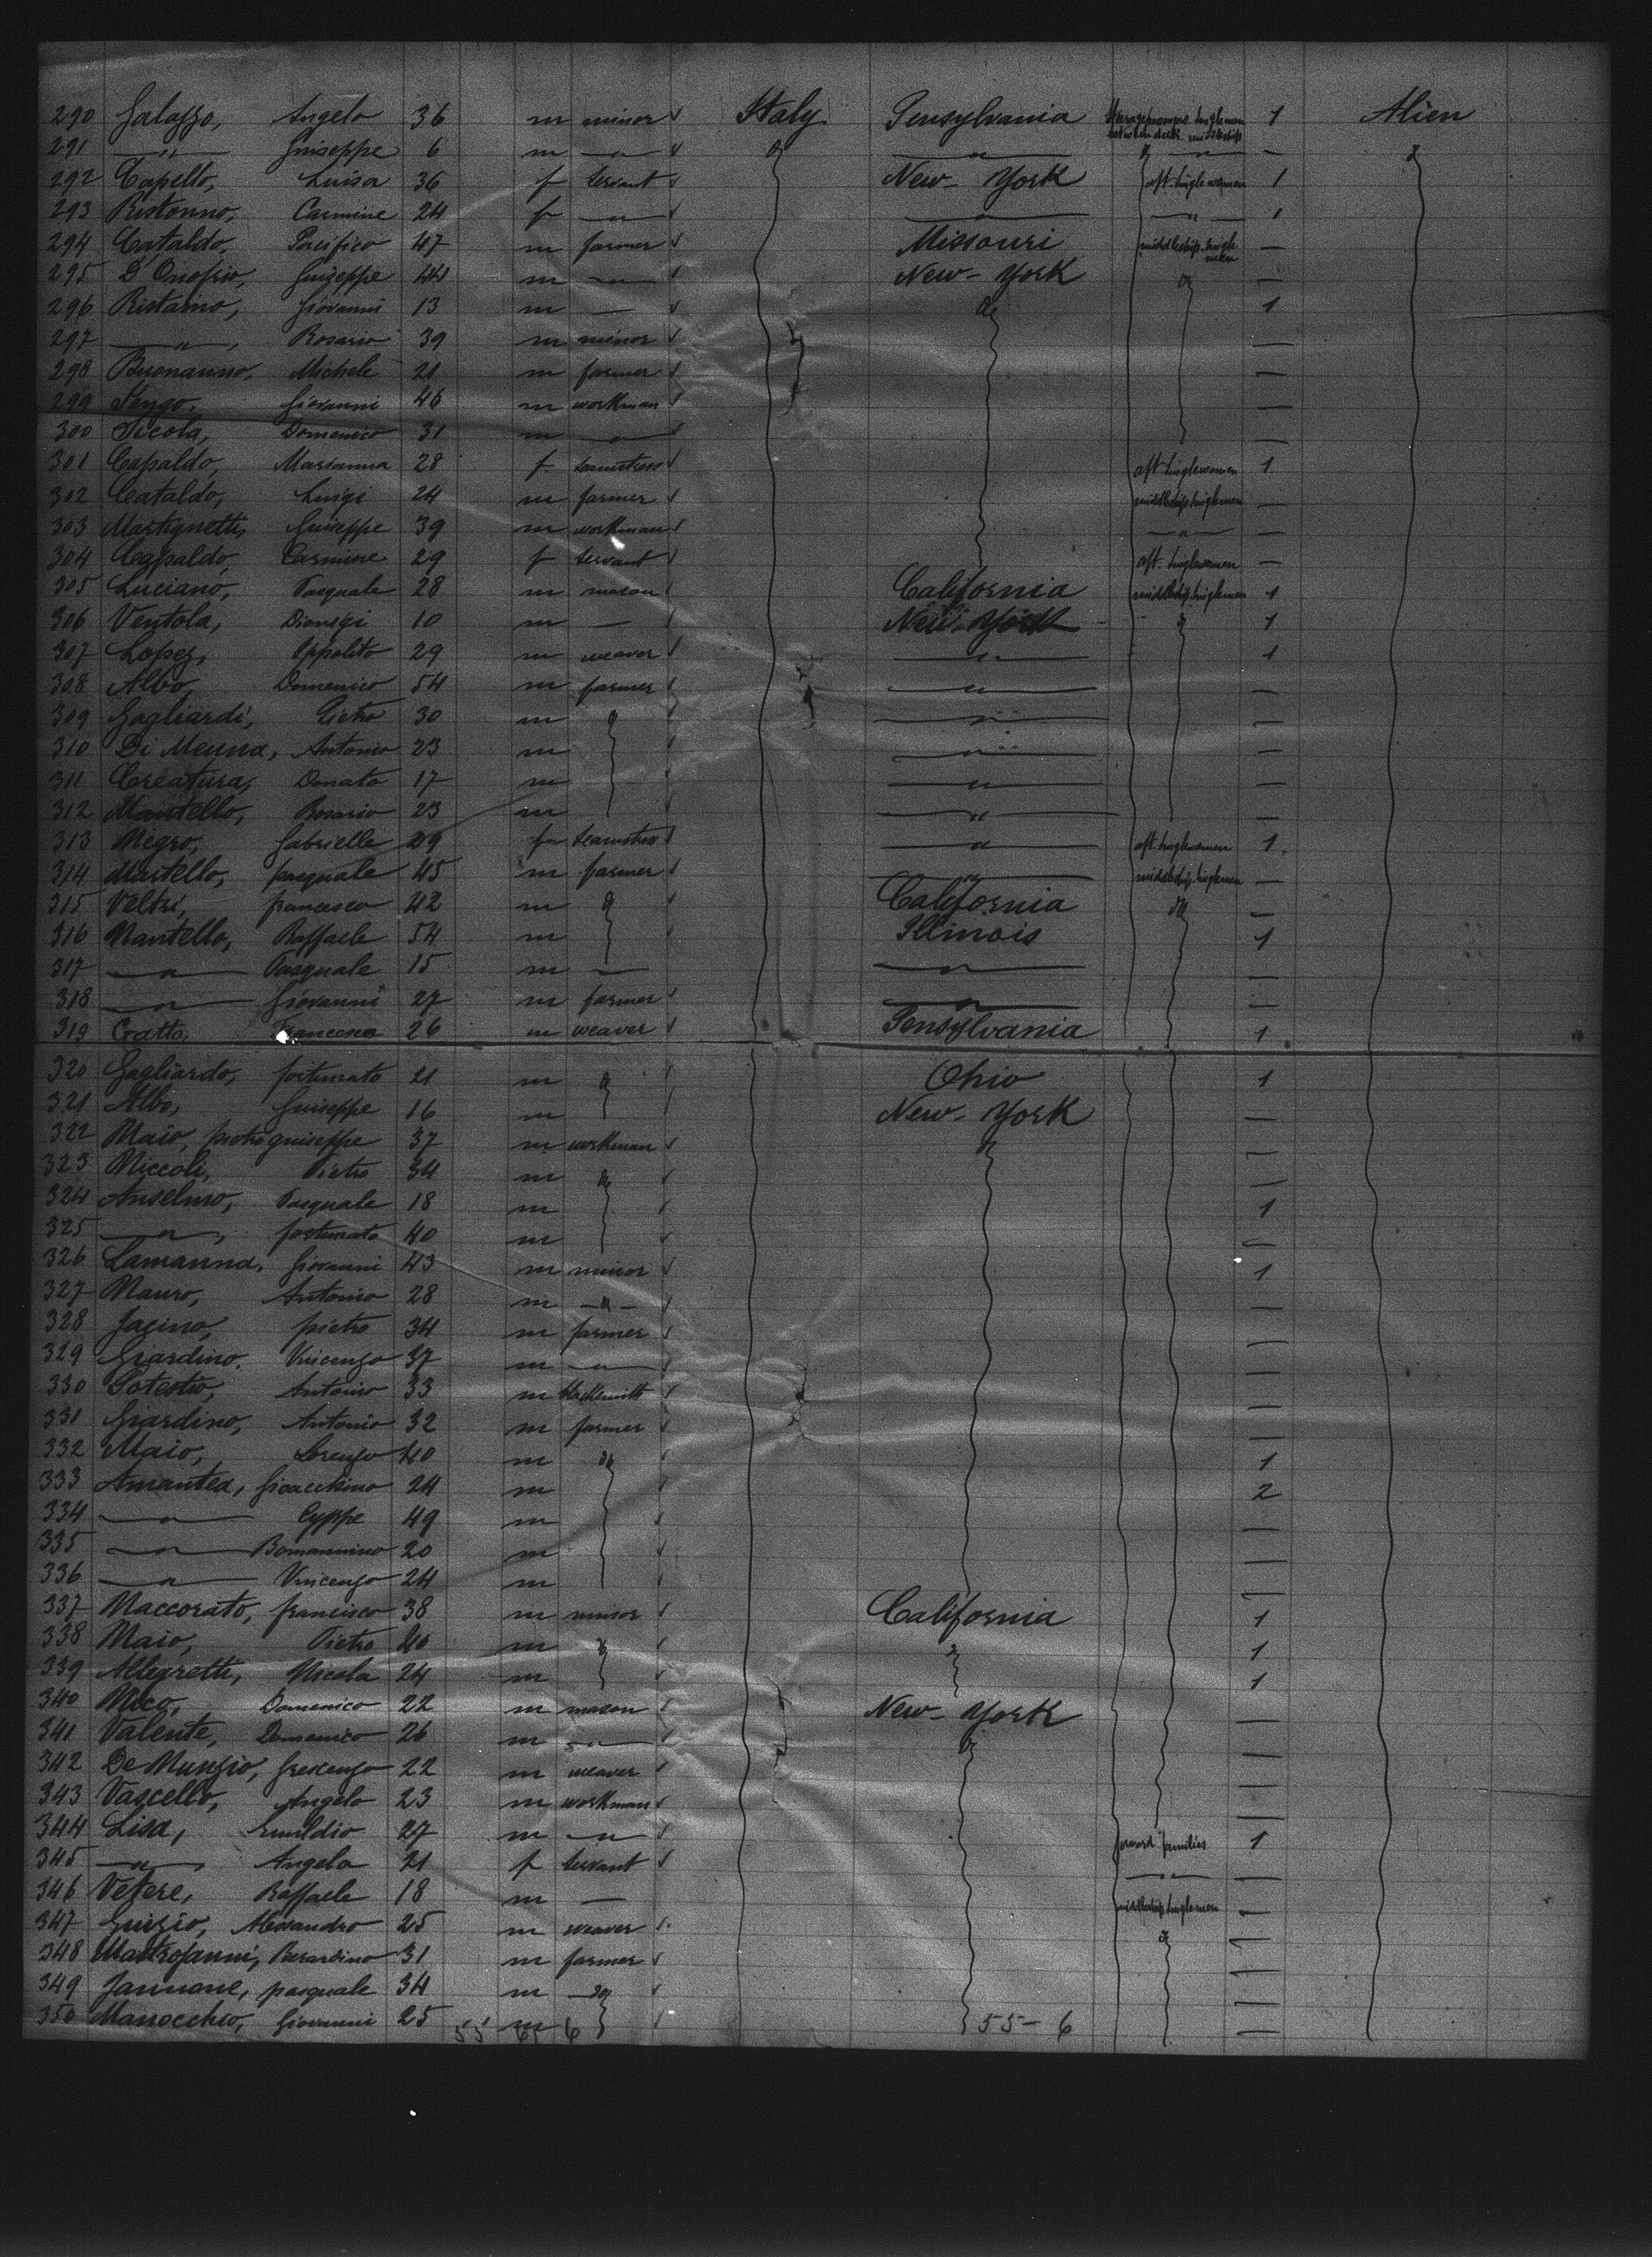 290 Galazzo, Angelo 36 m minor Italy Pensylvania Steragepassengers singlemen between deck middleship 1 Alien
291 —"— Guiseppe 6 m —"— —"— —"— —
292 Capello, Luisa 36 f servant New-York aft. singlewomen 1
293 Ristonno, Carmine 24 f —"— —"— —"— 1
294 Cataldo, Pacifico 47 m farmer Missouri middleship. single men —
295 D'Onofrio, Guiseppe 44 m —"— New-York —
296 Ristaino, Giovanni 13 m — 1
297 —"—, Rosario 39 m minor —
298 Buonanno, Michele 21 m farmer —
299 Sengo, Giovanni 46 m workman —
300 Sicola, Domenico 31 m —"— —
301 Capaldo, Marianna 28 f seamstress aft singlewomen 1
302 Cataldo, Luigi 24 m farmer middleship. singlemen —
303 Martignetti, Guiseppe 39 m workman —"— —
304 Capaldo, Carmine 29 f servant aft. singlewomen —
305 Luciano, Pasquale 28 m mason California middleship. singlemen 1
306 Ventola, Dionigi 10 m — New-York 1
307 Lopez, Ippolito 29 m weaver —"— 1
308 Albo, Domenico 54 m farmer —"— —
309 Gagliardi, Pietro 30 m —"— —
310 Di Menna, Antonio 23 m —"— —
311 Creatura, Donato 17 m —"— —
312 Mantello, Rosario 23 m —"— —
313 Negro, Gabrielle 29 f seamstress —"— aft. singlewomen 1
314 Martello, pasquale 45 m farmer —"— middleship. singlemen —
315 Veltri, francesco 42 m California —
316 Mantello, Raffaele 54 m Illinois 1
317 —"— Pasquale 15 m — —"— —
318 —"— Giovanni 27 m farmer —"— —
319 Gatto, Francesco 26 m weaver Pensylvania 1
320 Gagliardo, fortunato 21 m Ohio 1
321 Albo, Guiseppe 16 m New-York —
322 Maio, pietro guiseppe 37 m workman —
323 Niccoli, Pietro 34 m —
324 Anselmo, Pasquale 18 m 1
325 —"—, fortunato 40 m —
326 Lamanna, Giovanni 43 m minor 1
327 Mauro, Antonio 28 m —"— —
328 Jacino, pietro 34 m farmer —
329 Giardino, Vincenzo 37 m —"— —
330 Antonio 33 m blacksmith —
331 Giardino, Antonio 32 m farmer —
332 Maio, Lorenzo 40 m 1
333 Amantea, Gioacchino 24 m 2
334 —"— 49 m —
335 —"— 20 m —
336 —"— Vincenzo 24 m —
337 Maccorato, francisco 38 m minor California 1
338 Maio, Pietro 40 m 1
339 Allegretti, Nicola 24 m 1
340 Domenico 22 m mason New-York —
341 Valente, Domenico 26 m —"— —
342 De Munzio, Crescenzo 22 m weaver —
343 Vascello, Angelo 23 m workman —
344 Lisa, Emildio 27 m —"— forward families 1
345 —"—, Angela 21 f servant —"— —
346 Vetere, Raffaele 18 m — middleship singlemen —
347 Alexandro 25 m weaver —
348 Mastrojanni, Berardino 31 m farmer —
349 Jannone, pasquale 34 m —
350 Manocchio, Giovanni 25 m —
55 6 55-6